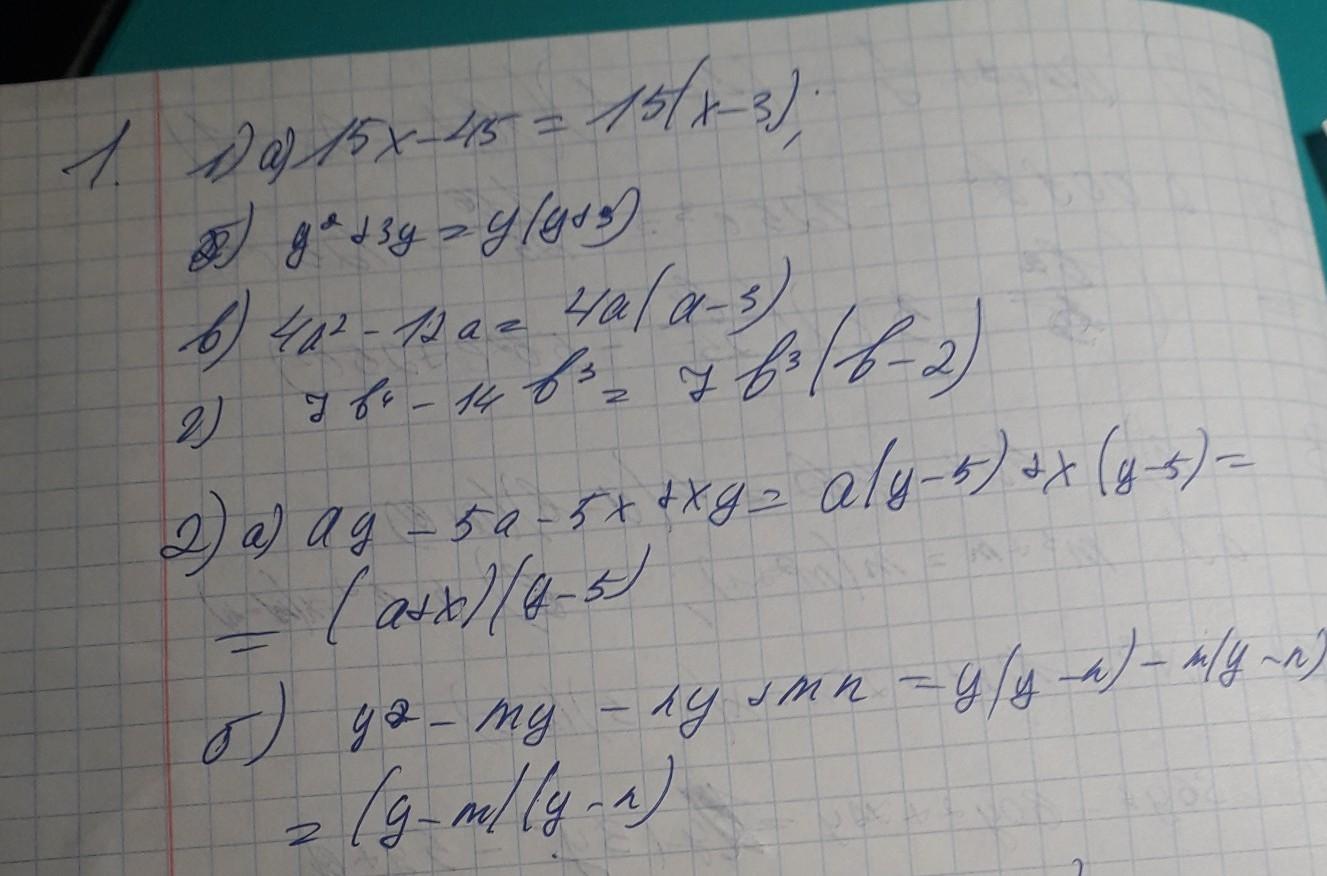 1. 1) а) 15x-45 = 15(x-3);
б) y²+3y = y(y+3)
в) 4a² - 12a = 4a(a-3)
г) 7b⁴ - 14b³ = 7b³(b-2)
2) а) ay - 5a - 5x + xy = a(y-5) + x(y-5) =
= (a+x)(y-5)
б) y2 - my - ny + mn = y(y-n) - m(y-n)
= (y-m)(y-n)